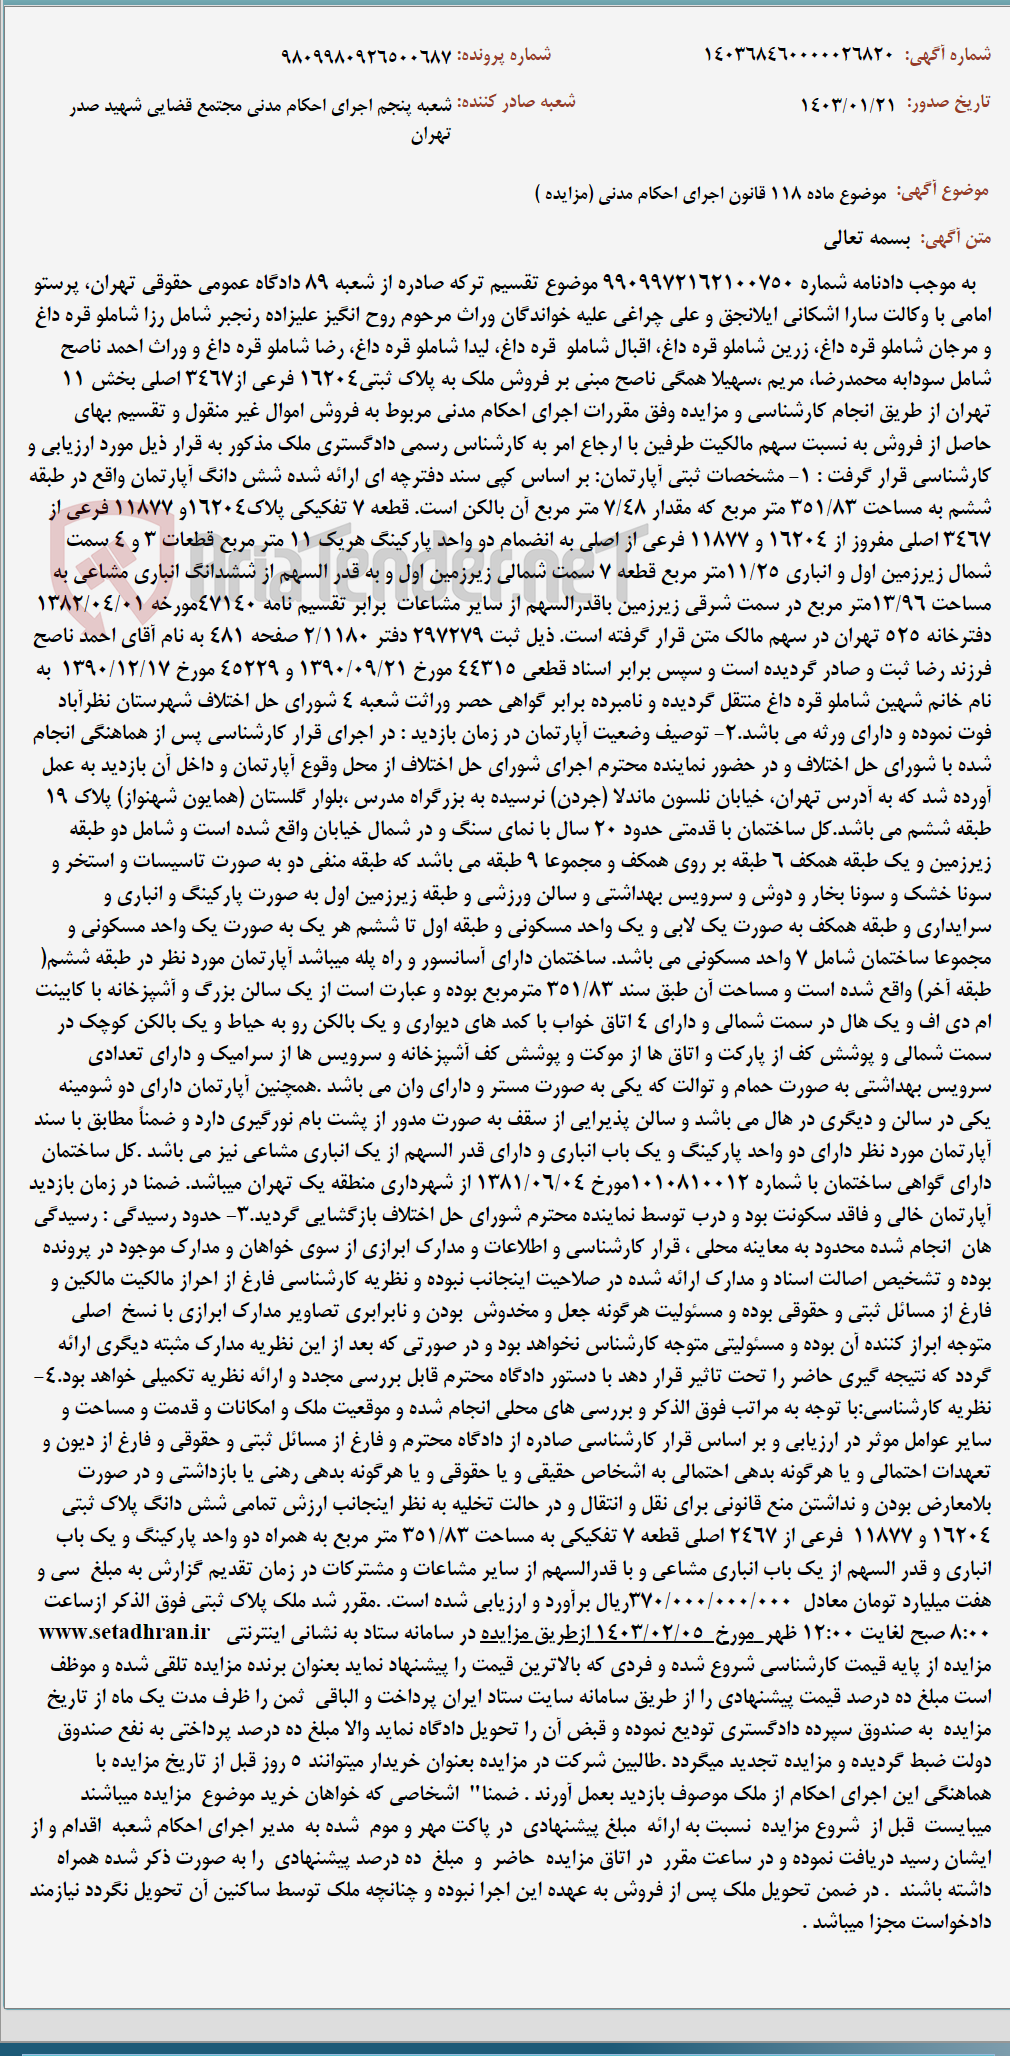 شماره آگهی: ۱۴۰۳۶۸۴۶۰۰۰۰۰۲۶۸۲۰ شماره پرونده: ۹۸۰۹۹۸۰۹۲۶۵۰۰۶۸۷
تاریخ صدور: ۱۴۰۳/۰۱/۲۱ شعبه صادر کننده: شعبه پنجم اجرای احکام مدنی مجتمع قضایی شهید صدر
تهران
موضوع آگهی: موضوع ماده ۱۱۸ قانون اجرای احکام مدنی (مزایده )
متن آگهی: بسمه تعالی
به موجب دادنامه شماره ۹۹۰۹۹۷۲۱۶۲۱۰۰۷۵۰ موضوع تقسیم ترکه صادره از شعبه ۸۹ دادگاه عمومی حقوقی تهران، پرستو
امامی با وکالت سارا اشکانی ایلانجق و علی چراغی علیه خواندگان وراث مرحوم روح انگیز علیزاده رنجبر شامل رزا شاملو قره داغ
و مرجان شاملو قره داغ، زرین شاملو قره داغ، اقبال شاملو قره داغ، لیدا شاملو قره داغ، رضا شاملو قره داغ و وراث احمد ناصح
شامل سودابه محمدرضا، مریم ،سهیلا همگی ناصح مبنی بر فروش ملک به پلاک ثبتی۱۶۲۰۴ فرعی از۳۴۶۷ اصلی بخش ۱۱
تهران از طریق انجام کارشناسی و مزایده وفق مقررات اجرای احکام مدنی مربوط به فروش اموال غیر منقول و تقسیم بهای
حاصل از فروش به نسبت سهم مالکیت طرفین با ارجاع امر به کارشناس رسمی دادگستری ملک مذکور به قرار ذیل مورد ارزیابی و
کارشناسی قرار گرفت : ۱- مشخصات ثبتی آپارتمان: بر اساس کپی سند دفترچه ای ارائه شده شش دانگ آپارتمان واقع در طبقه
ششم به مساحت ۳۵۱/۸۳ متر مربع که مقدار ۷/۴۸ متر مربع آن بالکن است. قطعه ۷ تفکیکی پلاک۱۶۲۰۴و ۱۱۸۷۷ فرعی از
۳۴۶۷ اصلی مفروز از ۱۶۲۰۴ و ۱۱۸۷۷ فرعی از اصلی به انضمام دو واحد پارکینگ هریک ۱۱ متر مربع قطعات ۳ و ۴ سمت
شمال زیرزمین اول و انباری ۱۱/۲۵متر مربع قطعه ۷ سمت شمالی زیرزمین اول و به قدر السهم از ششدانگ انباری مشاعی به
مساحت ۱۳/۹۶متر مربع در سمت شرقی زیرزمین باقدرالسهم از سایر مشاعات برابر تقسیم نامه ۴۷۱۴۰مورخه ۱۳۸۲/۰۴/۰۱
دفترخانه ۵۲۵ تهران در سهم مالک متن قرار گرفته است. ذیل ثبت ۲۹۷۲۷۹ دفتر ۲/۱۱۸۰ صفحه ۴۸۱ به نام آقای احمد ناصح
فرزند رضا ثبت و صادر گردیده است و سپس برابر اسناد قطعی ۴۴۳۱۵ مورخ ۱۳۹۰/۰۹/۲۱ و ۴۵۲۲۹ مورخ ۱۳۹۰/۱۲/۱۷ به
نام خانم شهین شاملو قره داغ منتقل گردیده و نامبرده برابر گواهی حصر وراثت شعبه ۴ شورای حل اختلاف شهرستان نظرآباد
فوت نموده و دارای ورثه می باشد.۲- توصیف وضعیت آپارتمان در زمان بازدید : در اجرای قرار کارشناسی پس از هماهنگی انجام
شده با شورای حل اختلاف و در حضور نماینده محترم اجرای شورای حل اختلاف از محل وقوع آپارتمان و داخل آن بازدید به عمل
آورده شد که به آدرس تهران، خیابان نلسون ماندلا (جردن) نرسیده به بزرگراه مدرس ،بلوار گلستان (همایون شهنواز) پلاک ۱۹
طبقه ششم می باشد.کل ساختمان با قدمتی حدود ۲۰ سال با نمای سنگ و در شمال خیابان واقع شده است و شامل دو طبقه
زیرزمین و یک طبقه همکف ۶ طبقه بر روی همکف و مجموعا ۹ طبقه می باشد که طبقه منفی دو به صورت تاسیسات و استخر و
سونا خشک و سونا بخار و دوش و سرویس بهداشتی و سالن ورزشی و طبقه زیرزمین اول به صورت پارکینگ و انباری و
سرایداری و طبقه همکف به صورت یک لابی و یک واحد مسکونی و طبقه اول تا ششم هر یک به صورت یک واحد مسکونی و
مجموعا ساختمان شامل ۷ واحد مسکونی می باشد. ساختمان دارای آسانسور و راه پله میباشد آپارتمان مورد نظر در طبقه ششم(
طبقه آخر) واقع شده است و مساحت آن طبق سند ۳۵۱/۸۳ مترمربع بوده و عبارت است از یک سالن بزرگ و آشپزخانه با کابینت
ام دی اف و یک هال در سمت شمالی و دارای ۴ اتاق خواب با کمد های دیواری و یک بالکن رو به حیاط و یک بالکن کوچک در
سمت شمالی و پوشش کف از پارکت و اتاق ها از موکت و پوشش کف آشپزخانه و سرویس ها از سرامیک و دارای تعدادی
سرویس بهداشتی به صورت حمام و توالت که یکی به صورت مستر و دارای وان می باشد .همچنین آپارتمان دارای دو شومینه
یکی در سالن و دیگری در هال می باشد و سالن پذیرایی از سقف به صورت مدور از پشت بام نورگیری دارد و ضمناً مطابق با سند
آپارتمان مورد نظر دارای دو واحد پارکینگ و یک باب انباری و دارای قدر السهم از یک انباری مشاعی نیز می باشد .کل ساختمان
دارای گواهی ساختمان با شماره ۱۰۱۰۸۱۰۰۱۲مورخ ۱۳۸۱/۰۶/۰۴ از شهرداری منطقه یک تهران میباشد. ضمنا در زمان بازدید
آپارتمان خالی و فاقد سکونت بود و درب توسط نماینده محترم شورای حل اختلاف بازگشایی گردید.۳- حدود رسیدگی : رسیدگی
هان انجام شده محدود به معاینه محلی ، قرار کارشناسی و اطلاعات و مدارک ابرازی از سوی خواهان و مدارک موجود در پرونده
بوده و تشخیص اصالت اسناد و مدارک ارائه شده در صلاحیت اینجانب نبوده و نظریه کارشناسی فارغ از احراز مالکیت مالکین و
فارغ از مسائل ثبتی و حقوقی بوده و مسئولیت هرگونه جعل و مخدوش بودن و نابرابری تصاویر مدارک ابرازی با نسخ اصلی
متوجه ابراز کننده آن بوده و مسئولیتی متوجه کارشناس نخواهد بود و در صورتی که بعد از این نظریه مدارک مثبته دیگری ارائه
گردد که نتیجه گیری حاضر را تحت تاثیر قرار دهد با دستور دادگاه محترم قابل بررسی مجدد و ارائه نظریه تکمیلی خواهد بود.۴-
نظریه کارشناسی:با توجه به مراتب فوق الذکر و بررسی های محلی انجام شده و موقعیت ملک و امکانات و قدمت و مساحت و
سایر عوامل موثر در ارزیابی و بر اساس قرار کارشناسی صادره از دادگاه محترم و فارغ از مسائل ثبتی و حقوقی و فارغ از دیون و
تعهدات احتمالی و یا هرگونه بدهی احتمالی به اشخاص حقیقی و یا حقوقی و یا هرگونه بدهی رهنی یا بازداشتی و در صورت
بلامعارض بودن و نداشتن منع قانونی برای نقل و انتقال و در حالت تخلیه به نظر اینجانب ارزش تمامی شش دانگ پلاک ثبتی
۱۶۲۰۴ و ۱۱۸۷۷ فرعی از ۲۴۶۷ اصلی قطعه ۷ تفکیکی به مساحت ۳۵۱/۸۳ متر مربع به همراه دو واحد پارکینگ و یک باب
انباری و قدر السهم از یک باب انباری مشاعی و با قدرالسهم از سایر مشاعات و مشترکات در زمان تقدیم گزارش به مبلغ سی و
هفت میلیارد تومان معادل ۳۷۰/۰۰۰/۰۰۰/۰۰۰ریال برآورد و ارزیابی شده است. .مقرر شد ملک پلاک ثبتی فوق الذکر ازساعت
۸:۰۰ صبح لغایت ۱۲:۰۰ ظهر مورخ ۱۴۰۳/۰۲/۰۵ ازطریق مزایده در سامانه ستاد به نشانی اینترنتی www.setadhran.ir
مزایده از پایه قیمت کارشناسی شروع شده و فردی که بالاترین قیمت را پیشنهاد نماید بعنوان برنده مزایده تلقی شده و موظف
است مبلغ ده درصد قیمت پیشنهادی را از طریق سامانه سایت ستاد ایران پرداخت و الباقی ثمن را ظرف مدت یک ماه از تاریخ
مزایده به صندوق سپرده دادگستری تودیع نموده و قبض آن را تحویل دادگاه نماید والا مبلغ ده درصد پرداختی به نفع صندوق
دولت ضبط گردیده و مزایده تجدید میگردد .طالبین شرکت در مزایده بعنوان خریدار میتوانند ۵ روز قبل از تاریخ مزایده با
هماهنگی این اجرای احکام از ملک موصوف بازدید بعمل آورند . ضمنا" اشخاصی که خواهان خرید موضوع مزایده میباشند
میبایست قبل از شروع مزایده نسبت به ارائه مبلغ پیشنهادی در پاکت مهر و موم شده به مدیر اجرای احکام شعبه اقدام و از
ایشان رسید دریافت نموده و در ساعت مقرر در اتاق مزایده حاضر و مبلغ ده درصد پیشنهادی را به صورت ذکر شده همراه
داشته باشند . در ضمن تحویل ملک پس از فروش به عهده این اجرا نبوده و چنانچه ملک توسط ساکنین آن تحویل نگردد نیازمند
دادخواست مجزا میباشد .
AriaTender.neT